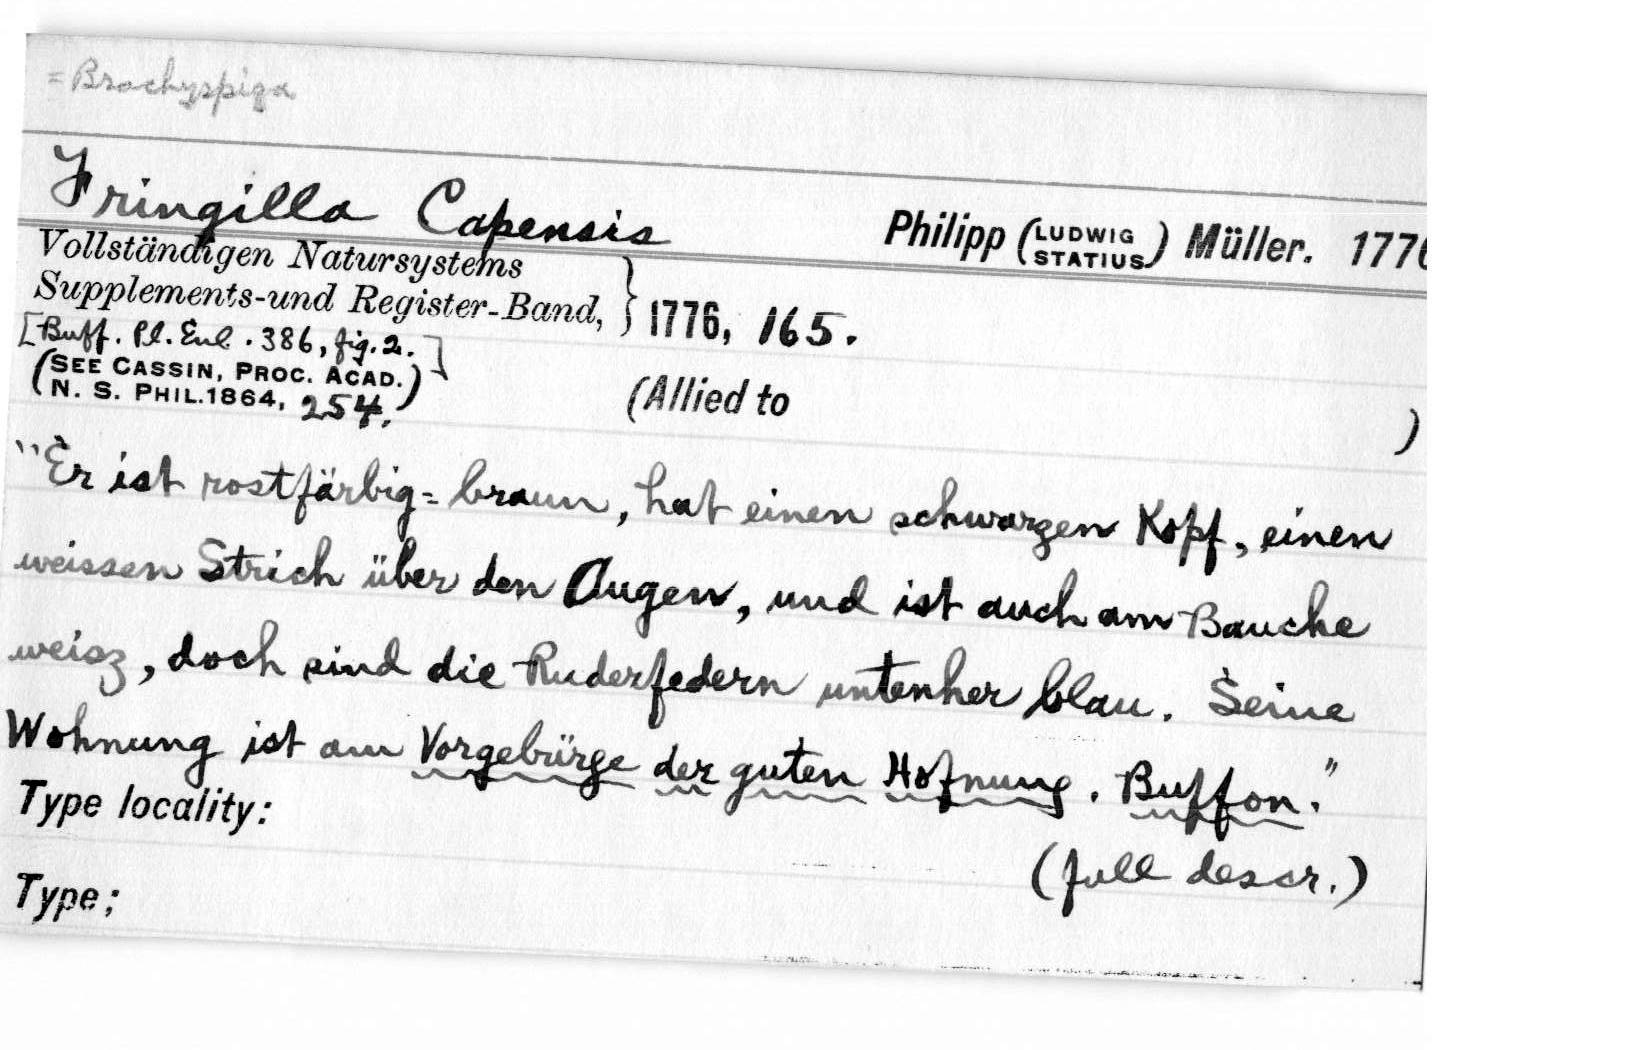 =Brachyspiza
Fringilla Capensis Philipp (LUDWIG STATIUS) Müller. 1776
Vollständigen Natursystems
Supplements-und Register-Band, } 1776, 165.
[Buff. Pl. Enl. 386, fig. 2.]
(SEE CASSIN, PROC. ACAD.
N. S. PHIL. 1864, 254.) (Allied to )
"Er ist rostfärbig=braun, hat einen schwarzen Kopf, einen
weissen Strich über den Augen, und ist auch am Bauche
weisz, doch sind die Ruderfedern untenher blau. Seine
Wohnung ist am Vorgebürge der guten Hofnung. Buffon."
Type locality:
(full descr.)
Type;